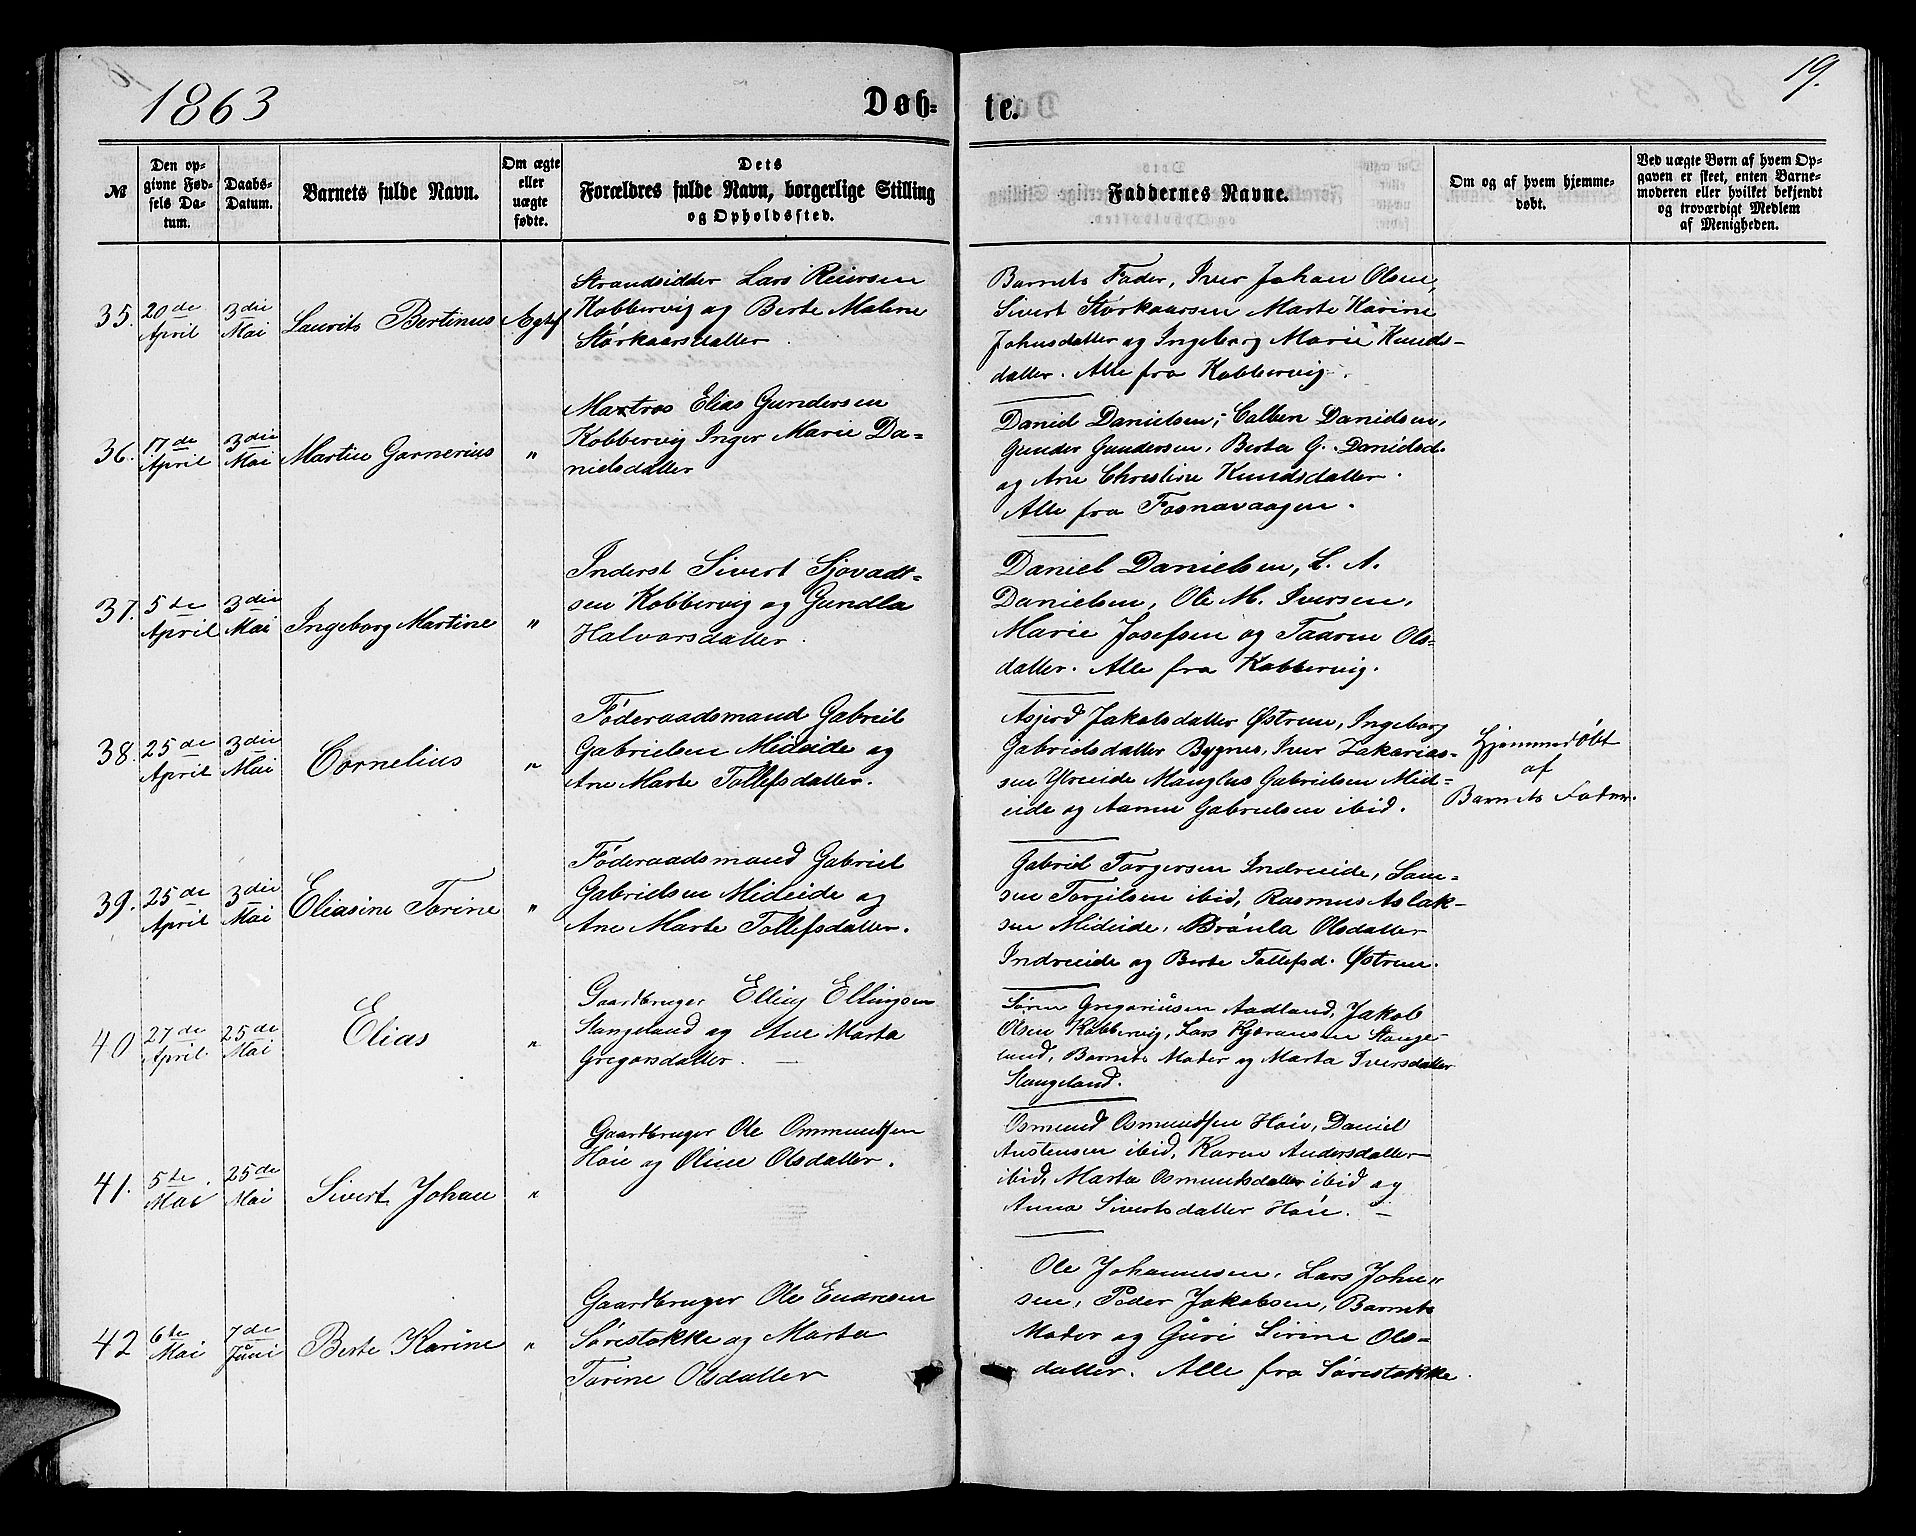 1863
Døb-
te.
19.
№
Den op-
givne Fød-
sels Da-
tum.
Daabs-
Datum.
Barnets fulde Navn.
Om ægte
eller
uægte
fødte.
Dets
Forældres fulde Navn, borgerlige Stilling
og Opholdssted.
Faddernes Navne.
Om og af hvem hjemme-
døbt.
Ved uægte Børn af hvem Op-
gaven er skeet, enten Barne-
moderen eller hvilket bekjendt
og troværdigt Medlem
af Menigheden.
35. 20de April
3die Mai
Laurits Bertinus
Ægtef
Strandsidder Lars Reiersen
Kobbervig og Berte Malene
Størkaarsdatter.
Barnets Fader, Iver Johan Olsen,
Sivert Størkaarsen Marte Karine
Johnsdatter og Ingeborg Marie Knuds-
datter. Alle fra Kobbervig.
36. 17de April
3die Mai
Martin Garnerius
"
Matros Elias Gundersen
Kobbervig Inger Marie Da-
nielsdatter
Daniel Danielsen, Danielsen,
Gunder Gundersen, Berta G. Danielsd.
og Ane Christine Knudsdatter.
Alle fra Fosnavaagen.
37. 5te April
3die Mai
Ingeborg Martine
"
Inderst Sivert Sjovadt-
sen Kobbervig og Gundla
Halvorsdatter.
Daniel Danielsen, L. A.
Danielsen, Ole M. Iversen,
Marie Josefsen og Taaren Ols-
datter. Alle fra Kobbervig.
38. 25de April
3die Mai
Cornelius
"
Føderaadsmand Gabriel
Gabrielsen Mideide og
Ane Marte Tollefsdatter.
Asjerd Jakobsdatter Østrem, Ingeborg
Gabrielsdatter Bygnes, Iver Zakarias-
sen Ytreeide Manglus Gabrielsen Mid-
eide og Aanen Gabrielsen ibid.
Hjemmedøbt
af
Barnets Fader.
39. 25de April
3die Mai
Eliasine Torine
"
Føderaadsmand Gabriel
Gabrielsen Mideide og
Ane Marte Tollefsdatter.
Gabriel Torgersen Indreeide, Sam-
sen Torjilsen ibid, Rasmus Aslak-
sen Mideide, Brønla Olsdatter
Indreeide og Berte Tollefsd. Østrem.
40 27de April.
25de Mai
Elias
"
Gaardbruger Elling Ellingsen
Stangeland og Ane Marta
Gregorsdatter.
Søren Gregoriusen Aadland, Jakob
Olsen Kobbervig, Lars Kjøransen Stange-
land, Barnets Moder og Marta Iversdatter
Stangeland.
41. 5te Mai
25de Mai
Sivert Johan
"
Gaardbruger Ole Ommundsen
Høie og Oline Olsdatter.
Osmund Osmundsen Høie, Daniel
Austensen ibid, Karen Andersdatter
ibid, Marta Osmundsdatter ibid og
Anna Sivertsdatter Høie.
42 6te Mai
7de Juni
Berte Karine
"
Gaardbruger Ole Endresen
Sørestokke og Marta
Torine Olsdatter
Ole Johannesen, Lars John-
sen, Peder Jakobsen, Barnets
Moder og Guri Sirine Ols-
datter. Alle fra Sørestokke.